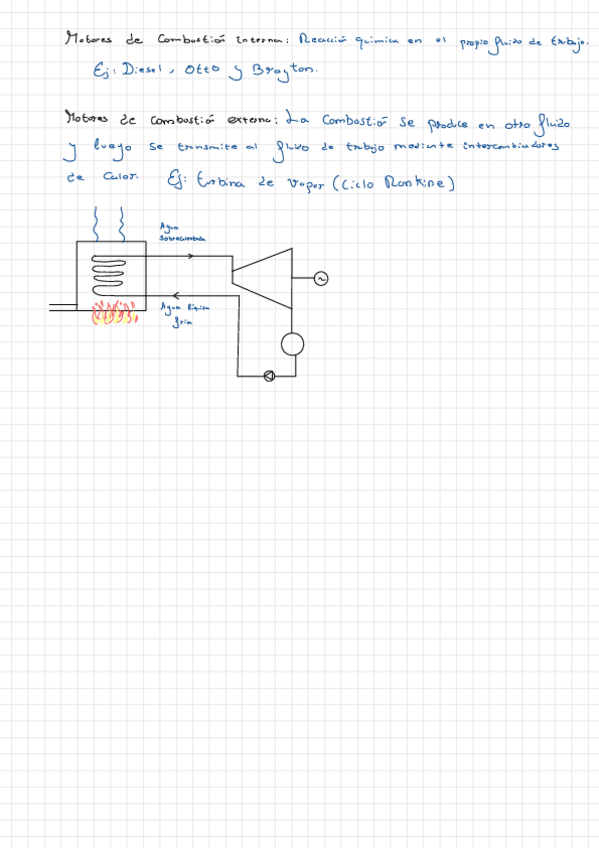 Motores de Combustión Interna: Reacción química en el propio fluido de trabajo.
Ej: Diesel, Otto y Brayton.
Motores de Combustió externa: La Combostió se produce en otro fluido
y luego se transmite al fluido de trabajo mediante intercambiadores
de Calor. Ej: turbina de vapor (Ciclo Rankine)
Agua
Sobrecalentada
Agua líquida
fría